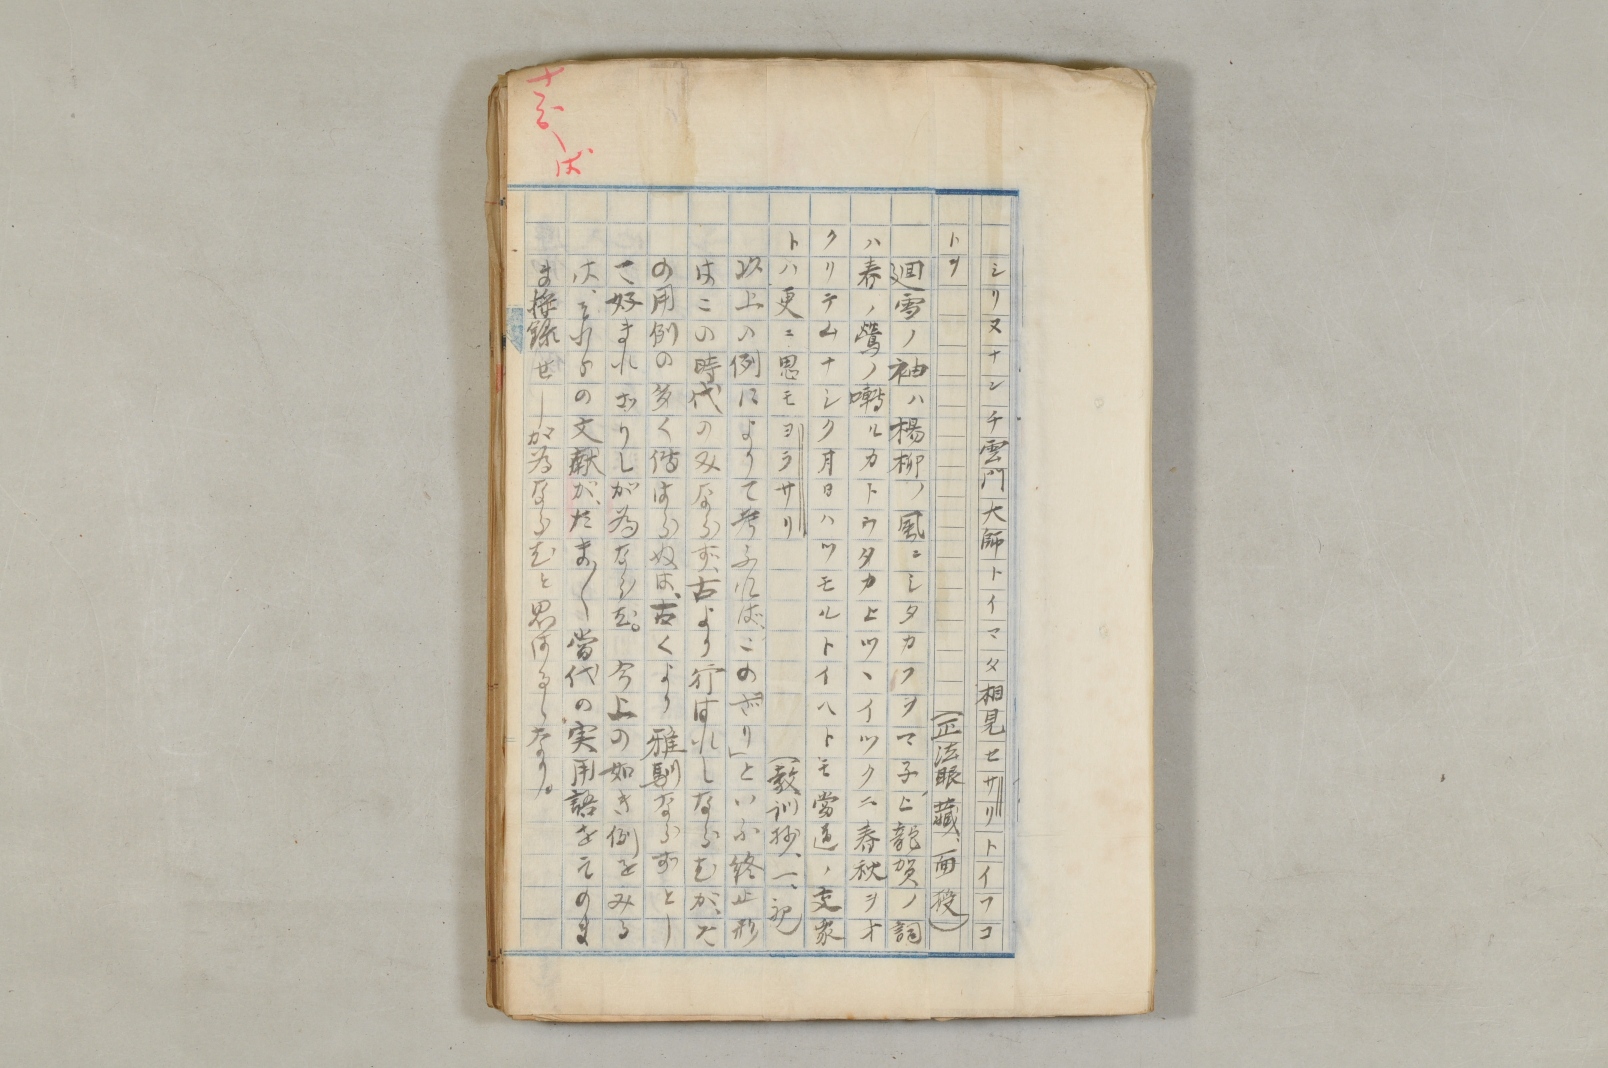 シリヌナンチ雲門大師トイマタ相見セサリトイフコ
トヲ
(正法眼藏、面授)
廻雪ノ袖ハ楊柳ノ風ニシタカフヲマ子ヒ龍賀ノ詞
ハ春ノ鶯ノ囀ルカトウタカヒツヽイツクニ春秋ヲオ
クリテムナシク月日ハツモルトイヘトモ當道ノ支家
トハ更ニ思モヨラサリ
(教訓抄、一、記)
以上の例によりて考ふれば、この「ざり」といふ終止形
はこの時代のみならず、古より行はれしならむが、た
の用例の多く傳はらぬは、古くより雅馴ならずとし
て好まれざりしが為ならむ。今上の如き例をみる
は、それらの文獻が、たま〳〵當代の実用語をそのま
ま採錄せしが為ならむと思はるゝなり。